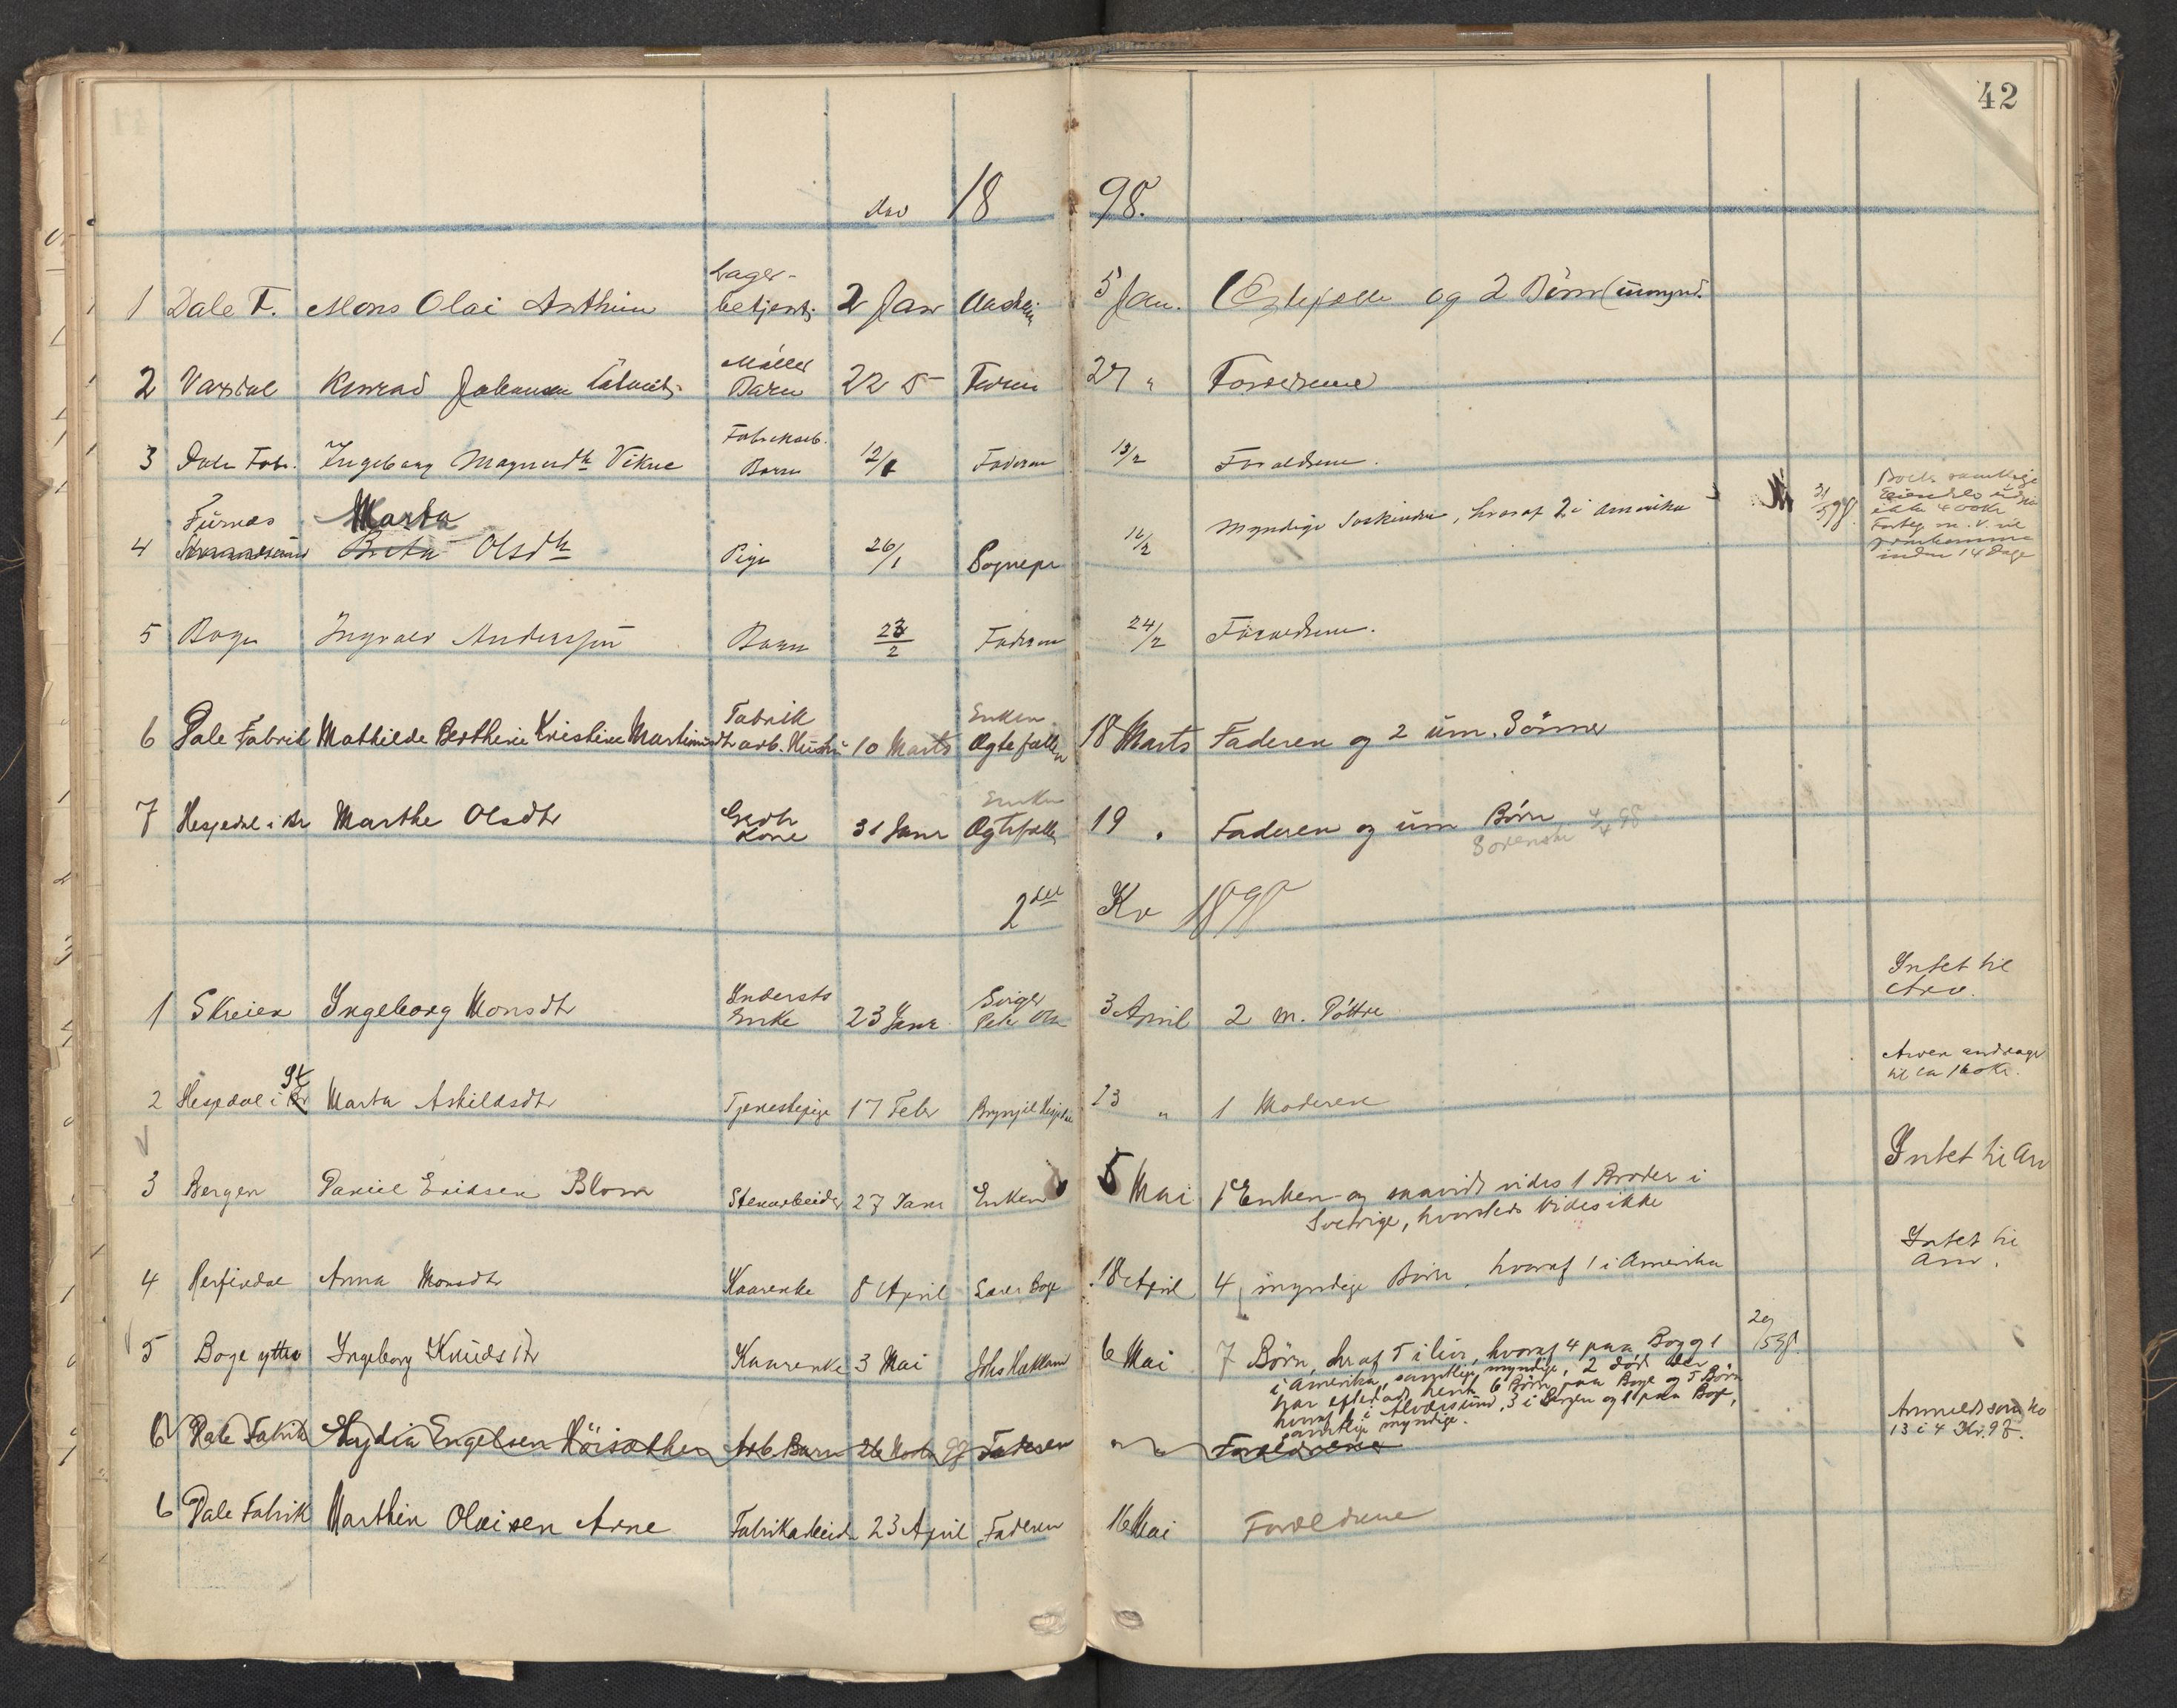 42
18 98.
Lager-
1 Dale F. Mons Olai Anthun betjent 2 Jan 5 Jan. Egtefælle og 2 Börn (umynd.
Møller
2 Vaxdal Konrad Johansen Barn 22 27 " Forældrene
Fabrikarb.
3 Dale Fabr. Ingeborg Magnusdtr Vikne Barn 12/2 Faderen 13/2 Forældrene.
Furnæs Marta
4 Brita Olsdtr Pige 26/1 Sognepr 16/2 Myndige Söskende, hvoraf 2 i Amerika 31/5 98.
Boets samlige
Eiendele
ikke 400 Kr
Forteg. m. v. vil
fremkomme
inden 14 Dage
5 Boge Ingvald Anderssøn Barn 23/2 Faderen 24/2 Forældrene.
Fabrik Enken
6 Dale Fabrik Mathilde Berthine Kristine Martinusdtr arb. Hustru 10 Marts Ægtefællen 18 Marts Faderen og 2 um. Sönner
Enken
7 Hesjedal i Br Marthe Olsdtr Grdbr Kone 31 Janr Ægtefælle 19 " Faderen og um Börn
Sorensk 4/4 98
2det Kv 1898
1 Skreien Ingeborg Monsdtr Inderste Enke 23 Janr Sviger Peder Olsen 3 April 2 m. Döttre
Intet til
Arv.
gt
2 Hesjedal i Br Marta Askildsdtr Tjenestepige 17 Febr Brynjel Hesjedal 23 " 1 Moderen
Arven andrager
til ca 160 Kr.
3 Bergen Daniel Eriksen Blom Stenarbeider 27 Janr Enken 5 Mai 1 Enken og saavidt vides 1 Broder i
Sverrige, hvorsteds vides ikke
Intet til Arv
4 Herfindal Anna Monsdtr Kaarenke 8 April Lars Boge 18 April 4 myndige Börn, hvoraf 1 i Amerika
Intet til
Arv.
5 Boge yttre Ingeborg Knudsdtr Kaarenke 3 Mai Johs Kallland 6 Mai 7 Börn, deraf 5 i live, hvoraf 4 paa Boge og 1
i Amerika, samtlige myndige, 2 død der
har efterladt henh. 6 Börn paa Boge og 5 Börn
hvoraf 1 i Alversund, 3 i Bergen og 1 paa Boge,
samtlige myndige.
29/5 98.
6 Dale Fabrik Lydia Engelsen Höisæther Arb Barn 26 Novbr 97 Faderen " " Forældrene
Anmeldt som No
13 i 4 Kv. 97.
6 Dale Fabrik Marthin Olaisen Arne Fabrikarbeid 23 April Faderen 16 Mai Forældrene